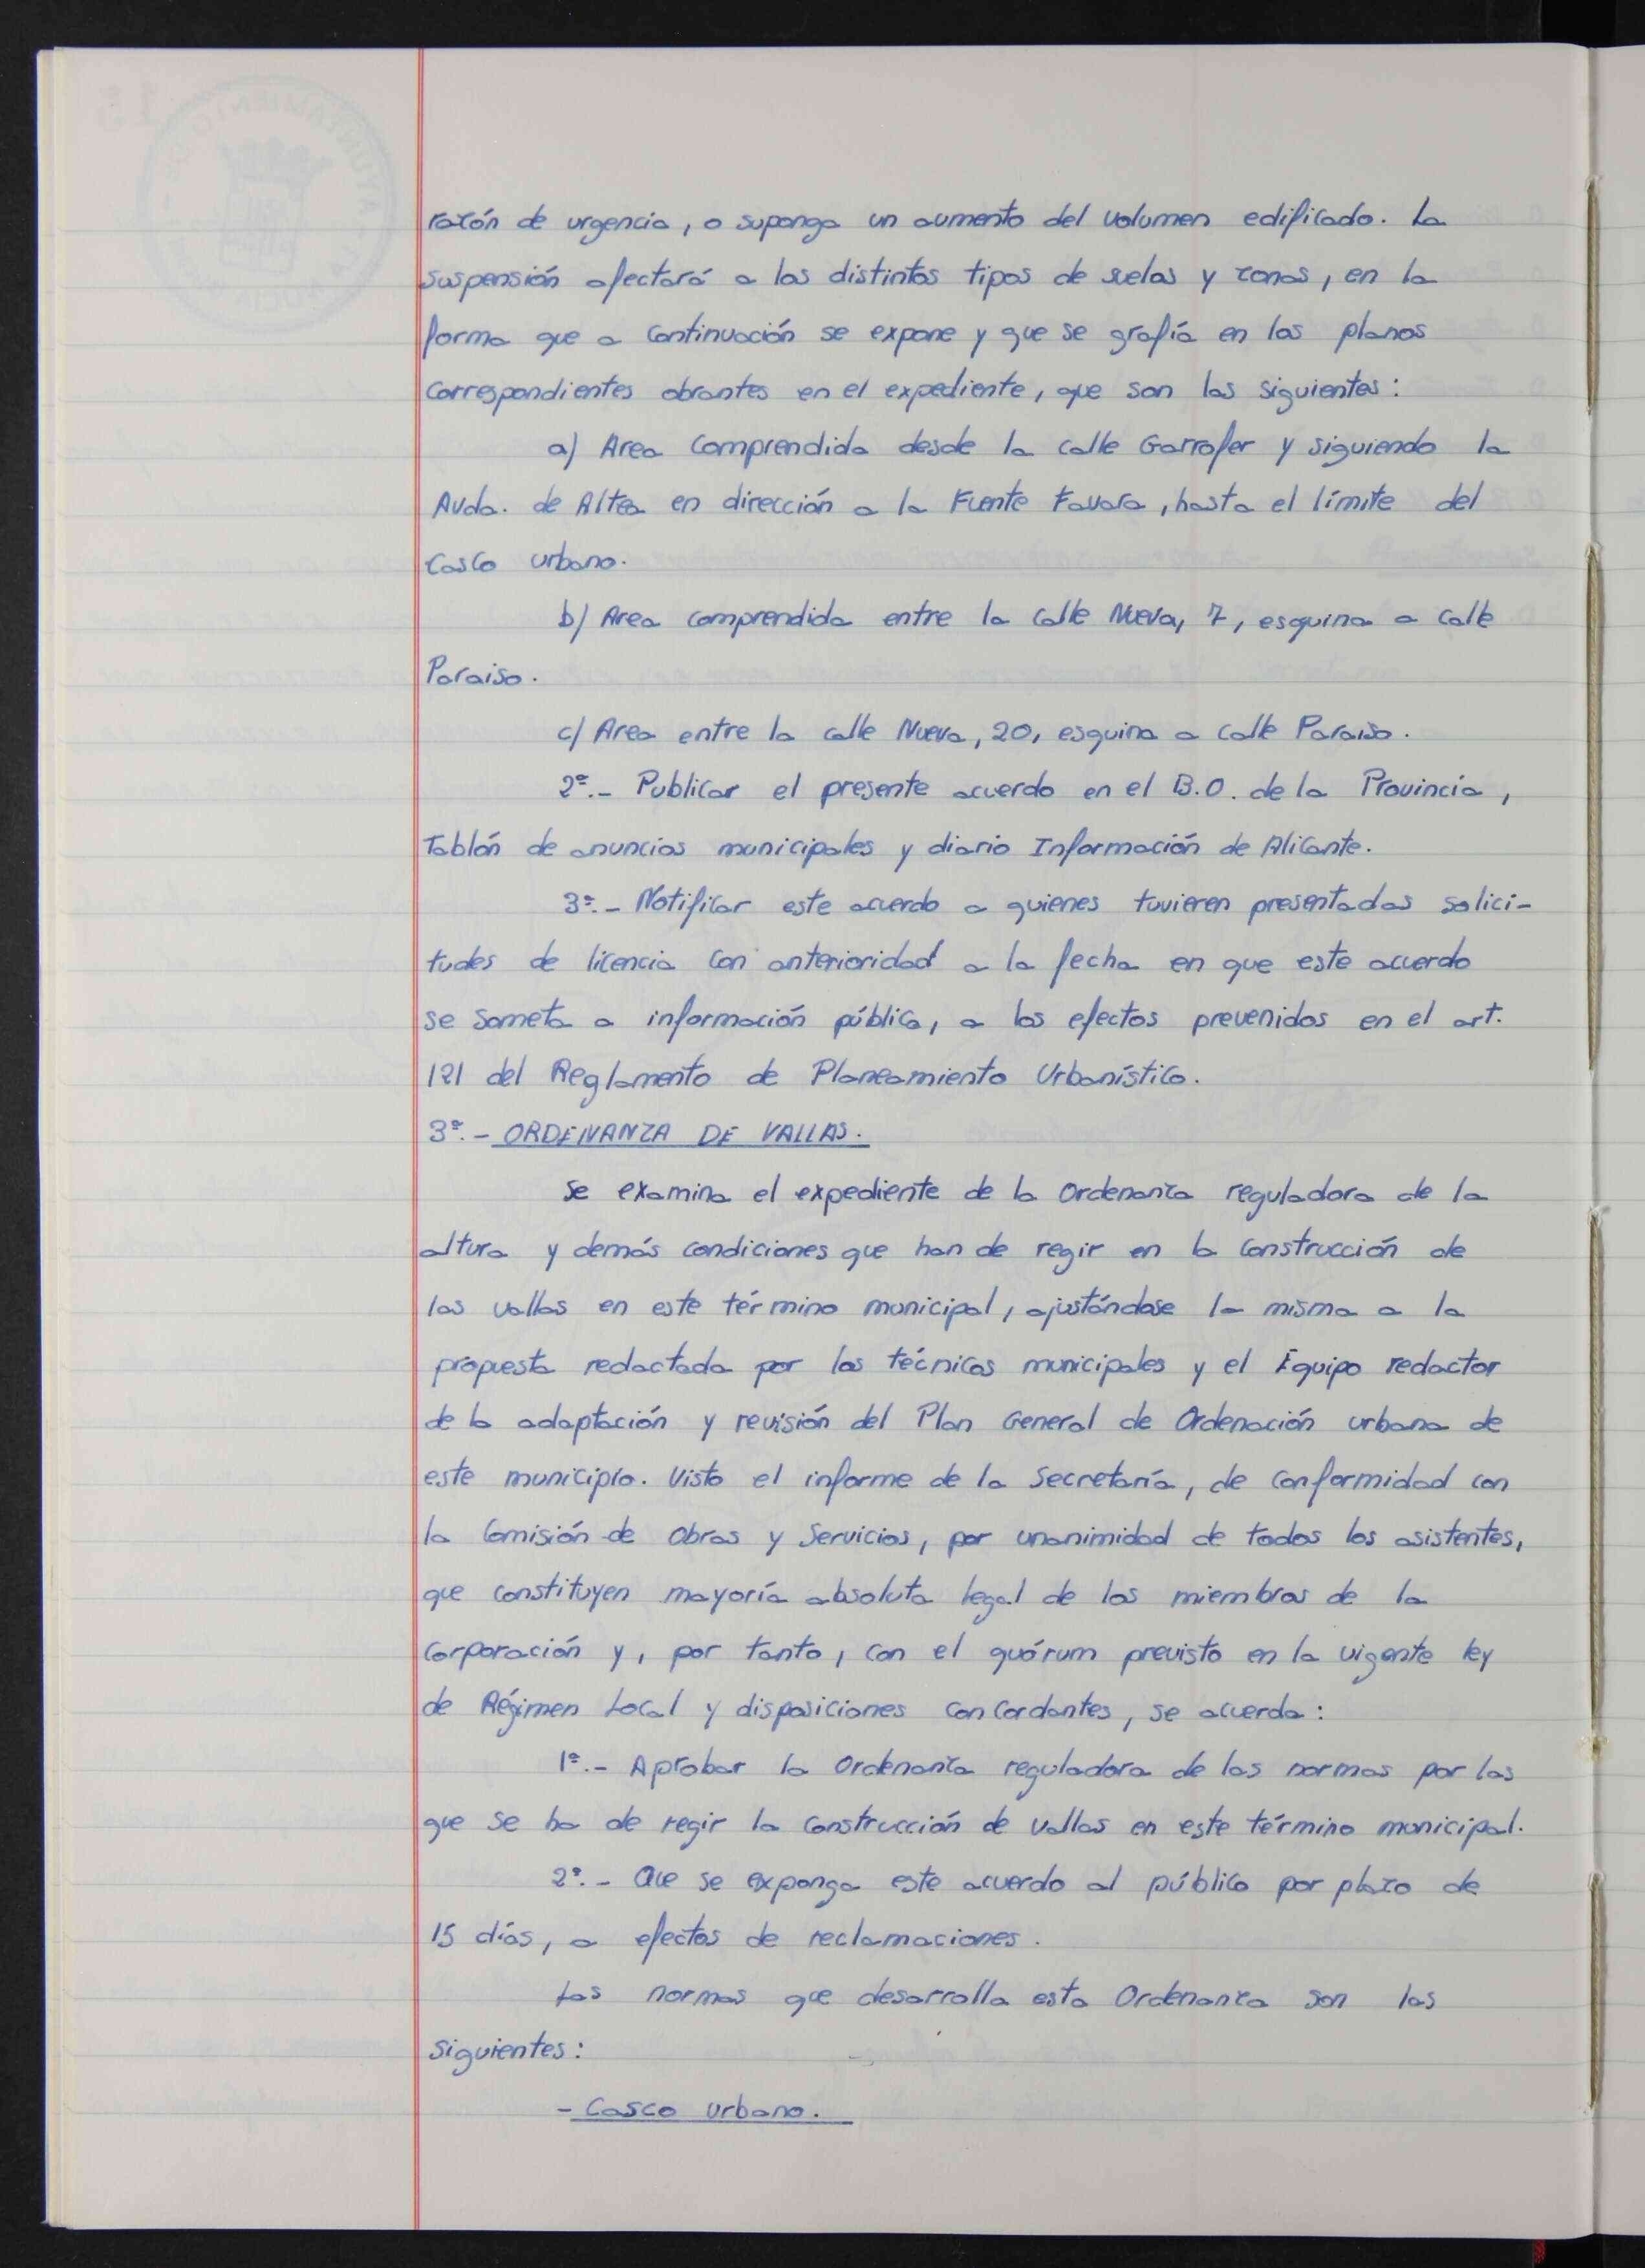 razón de urgencia, o suponga un aumento del volumen edificado. La
suspensión afectará a los distintos tipos de suelos y zonas, en la
forma que a continuación se expone y que se grafía en los planos
correspondientes obrantes en el expediente, que son los siguientes:
a) Area comprendida desde la calle Garrofer y siguiendo la
Avda. de Altea en dirección a la Fuente Favara, hasta el límite del
casco urbano.
b) Area comprendida entre la calle Nueva, 7, esquina a calle
Paraiso.
c) Area entre la calle Nueva, 20, esquina a calle Paraiso.
2º.- Publicar el presente acuerdo en el B.O. de la Provincia,
Tablón de anuncios municipales y diario Información de Alicante.
3º.- Notificar este acuerdo a quienes tuvieren presentadas solici-
tudes de licencia con anterioridad a la fecha en que este acuerdo
se someta a información pública, a los efectos prevenidos en el art.
121 del Reglamento de Planeamiento Urbanístico.
3º.- ORDENANZA DE VALLAS.
Se examina el expediente de la Ordenanza reguladora de la
altura y demás condiciones que han de regir en la construcción de
las vallas en este término municipal, ajustándose la misma a la
propuesta redactada por los técnicos municipales y el Equipo redactor
de la adaptación y revisión del Plan General de Ordenación urbana de
este municipio. Visto el informe de la Secretaría, de conformidad con
la Comisión de Obras y Servicios, por unanimidad de todos los asistentes,
que constituyen mayoría absoluta legal de los miembros de la
Corporación y, por tanto, con el quórum previsto en la vigente ley
de Régimen Local y disposiciones concordantes, se acuerda:
1º.- Aprobar la Ordenanza reguladora de las normas por las
que se ha de regir la construcción de vallas en este término municipal.
2º.- Que se exponga este acuerdo al público por plazo de
15 días, a efectos de reclamaciones.
Las normas que desarrolla esta Ordenanza son las
siguientes:
- Casco urbano.